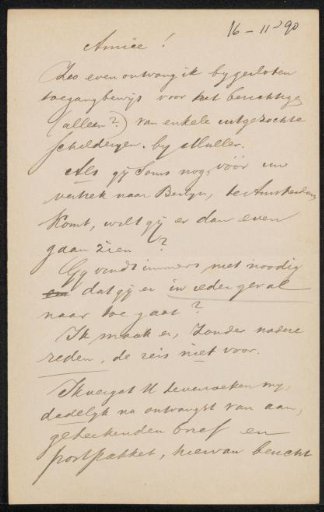 16-11-90
Amice!
Zoo even ontvang ik bygesloten
toegangbewijs voor het bezichtigen
(alleen?) van enkele uitgezochte
schilderyen. by Muller.
Als gij soms nog vóór uw
vertrek naar te Amsterdam
komt, wilt gij er dan even
gaan zien?
Gy vindt immers niet noodig
dat gij er in ieder geval
naar toe gaat?
Ik maak er, zonder nadere
reden, de reis niet voor.
Ik vergat U te verzoeken my,
dadelyk na ontvangst van aan-
geteekenden brief en
postpakket, hiervan bericht